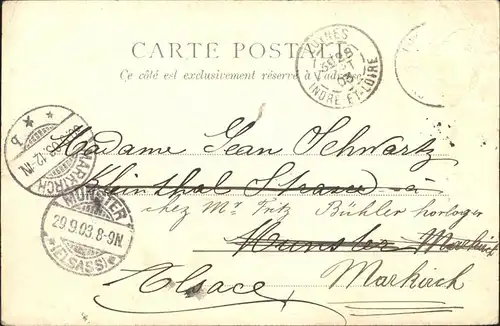 CARTE POSTALE
Ce côté est exclusivement réservé à l'adresse
INDRE-ET-LOIRE
03
MARKIRCH
MÜNSTER
29.9.03.8-9N.
*(ELSASS)*
Madame Jean Schwartz
Kleinthal Strasse - à
chez Mr. Fritz Bühler horloger
Munster Markirch
Alsace Markirch